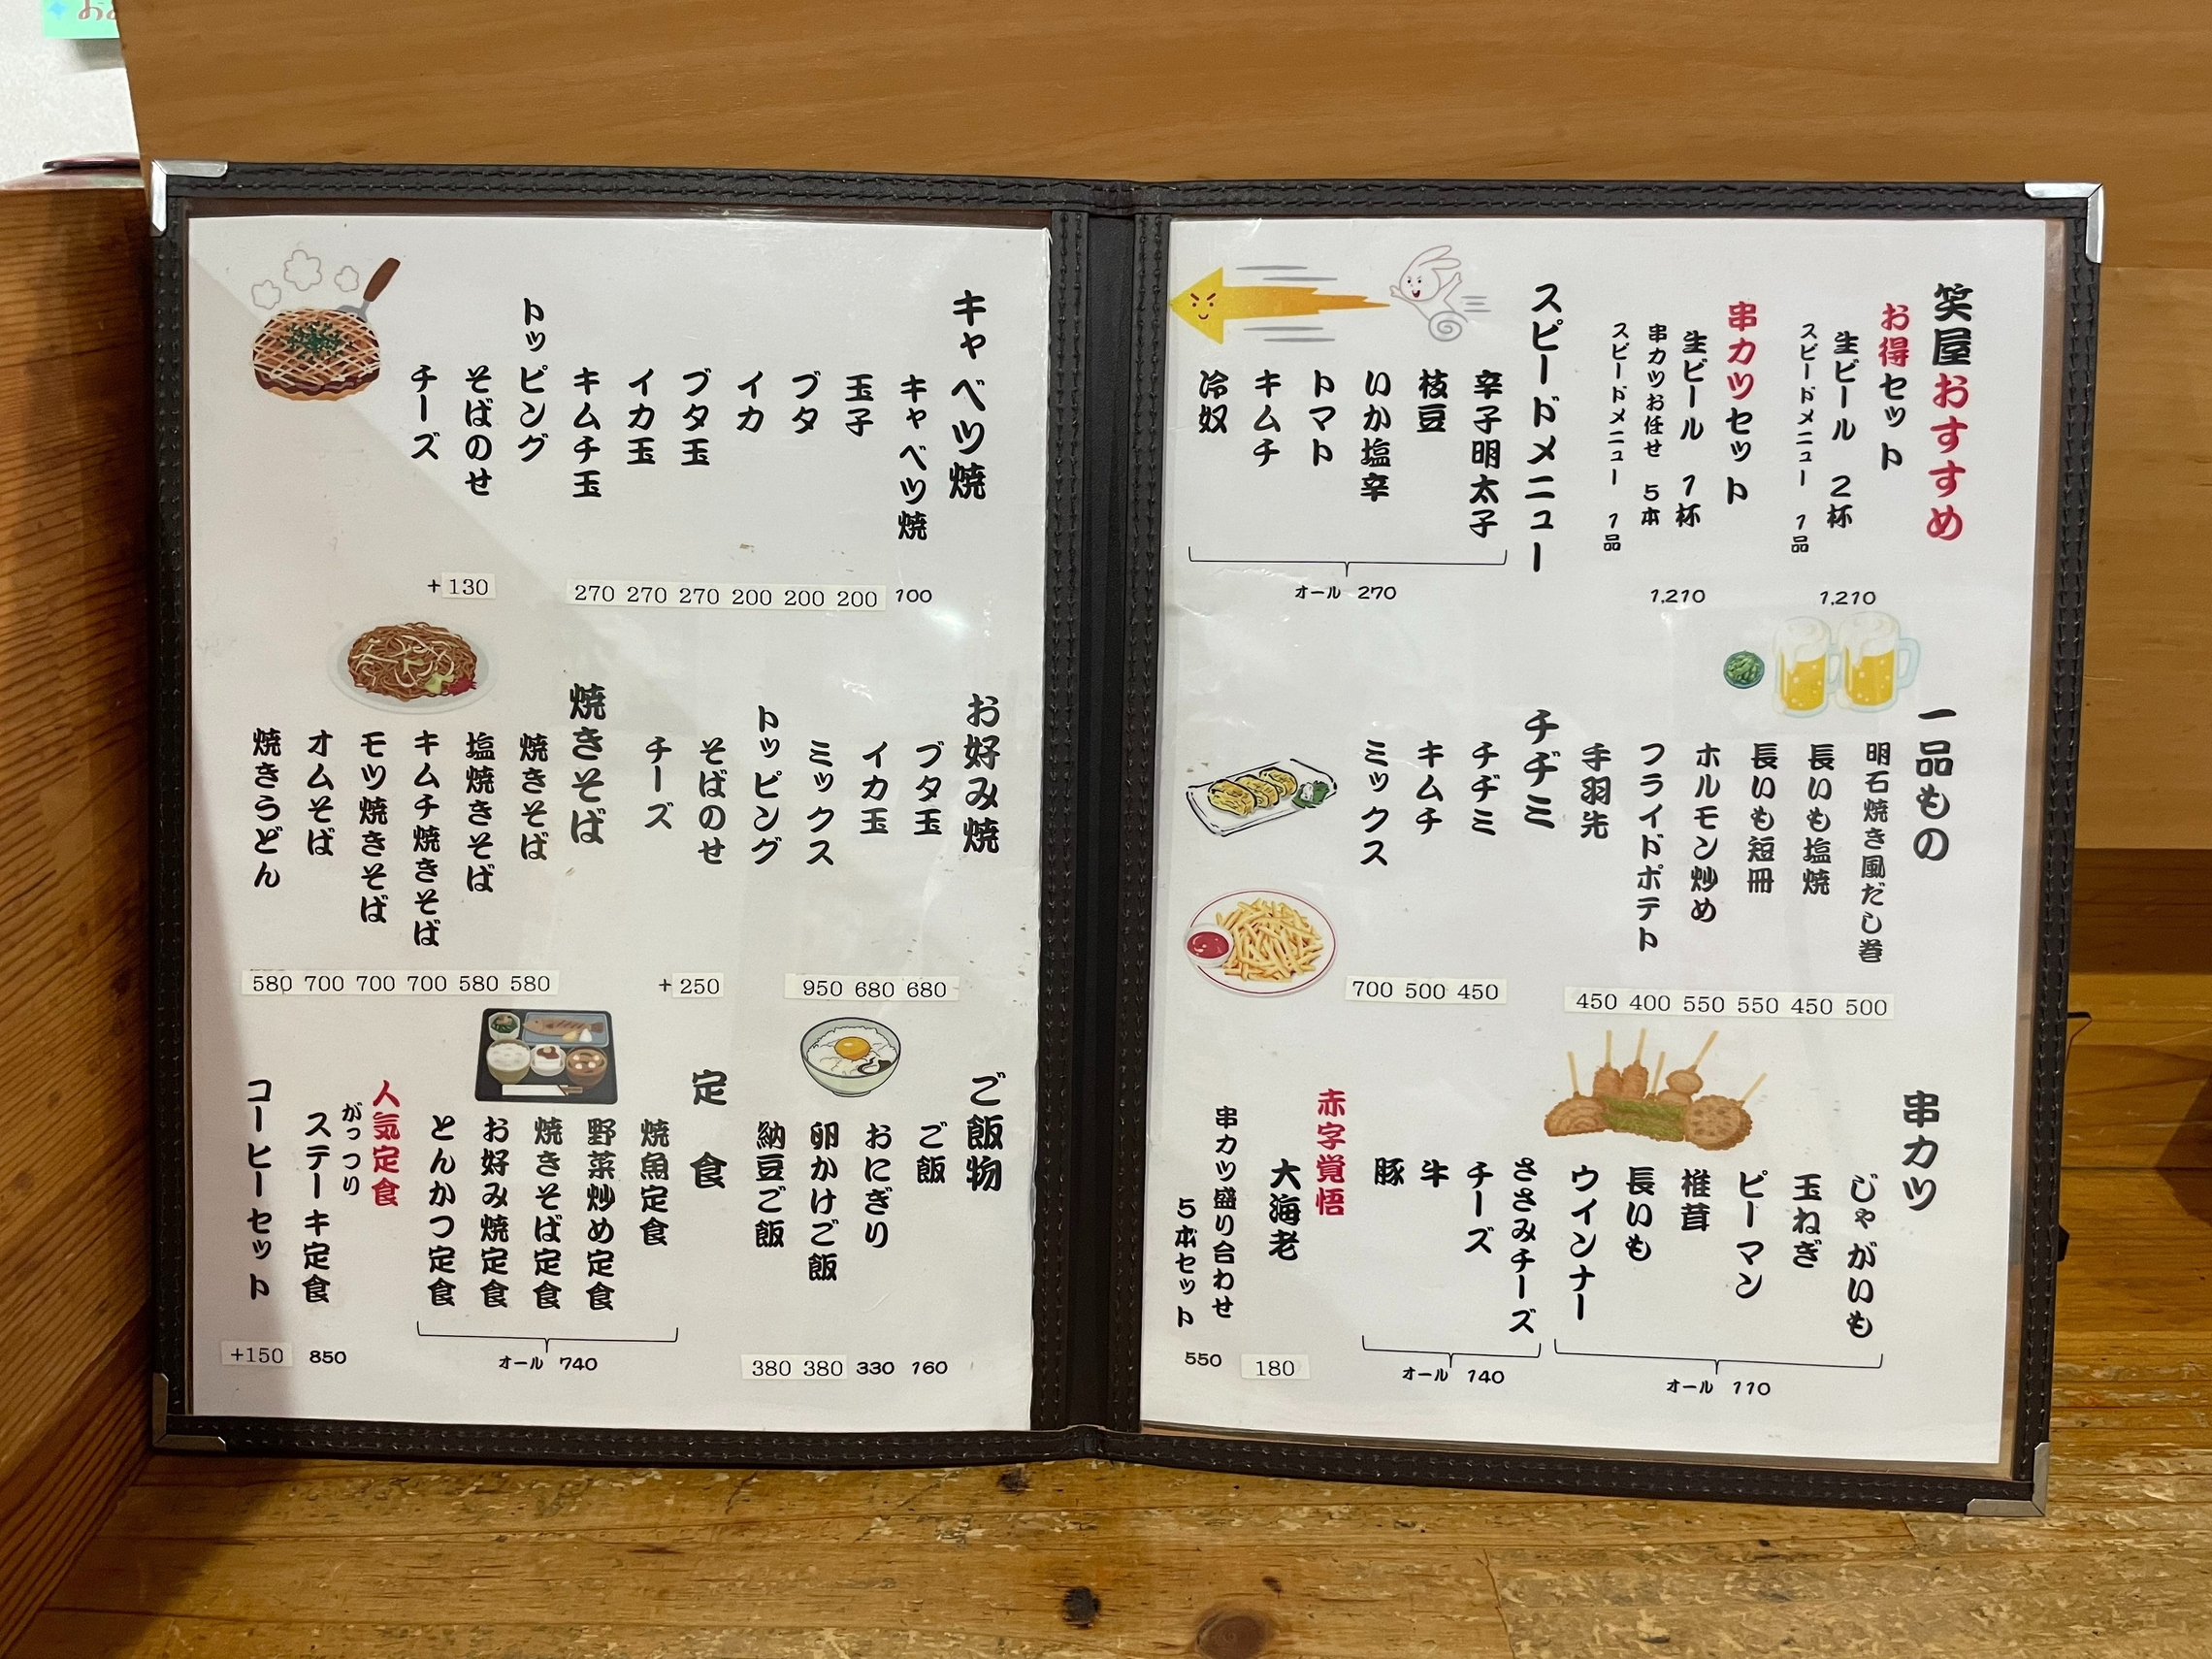 笑屋おすすめ
お得セット
生ビール 2杯
スピードメニュー 1品
1,210
串カツセット
生ビール 1杯
串カツお任せ 5本
スピードメニュー 1品
1,210
スピードメニュー
辛子明太子
枝豆
いか塩辛
トマト
キムチ
冷奴
オール 270
一品もの
明石焼き風だし巻
長いも塩焼
長いも短冊
ホルモン炒め
フライドポテト
手羽先
450 400 550 550 450 500
チヂミ
チヂミ
キムチ
ミックス
700 500 450
串カツ
じゃがいも
玉ねぎ
ピーマン
椎茸
長いも
ウインナー
オール 110
ささみチーズ
チーズ
牛
豚
オール 140
赤字覚悟
大海老
180
串カツ盛り合わせ
5本セット
550
キャベツ焼
キャベツ焼
玉子
ブタ
イカ
ブタ玉
イカ玉
キムチ玉
270 270 270 200 200 200 100
トッピング
そばのせ
チーズ
+130
お好み焼
ブタ玉
イカ玉
ミックス
950 680 680
トッピング
そばのせ
チーズ
+250
焼きそば
焼きそば
塩焼きそば
キムチ焼きそば
モツ焼きそば
オムそば
焼きうどん
580 700 700 700 580 580
ご飯物
ご飯
おにぎり
卵かけご飯
納豆ご飯
380 380 330 160
定食
焼魚定食
野菜炒め定食
焼きそば定食
お好み焼定食
とんかつ定食
オール 740
人気定食
がっつり
ステーキ定食
850
コーヒーセット
+150